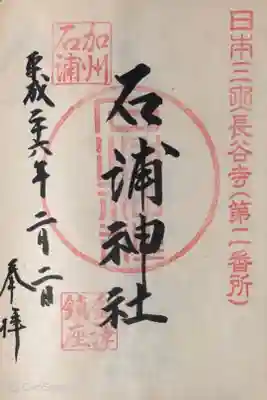 日本三所長谷寺(第二番所)
加州
石浦
石浦神社
鎮座
平成二十六年二月二日
奉拝